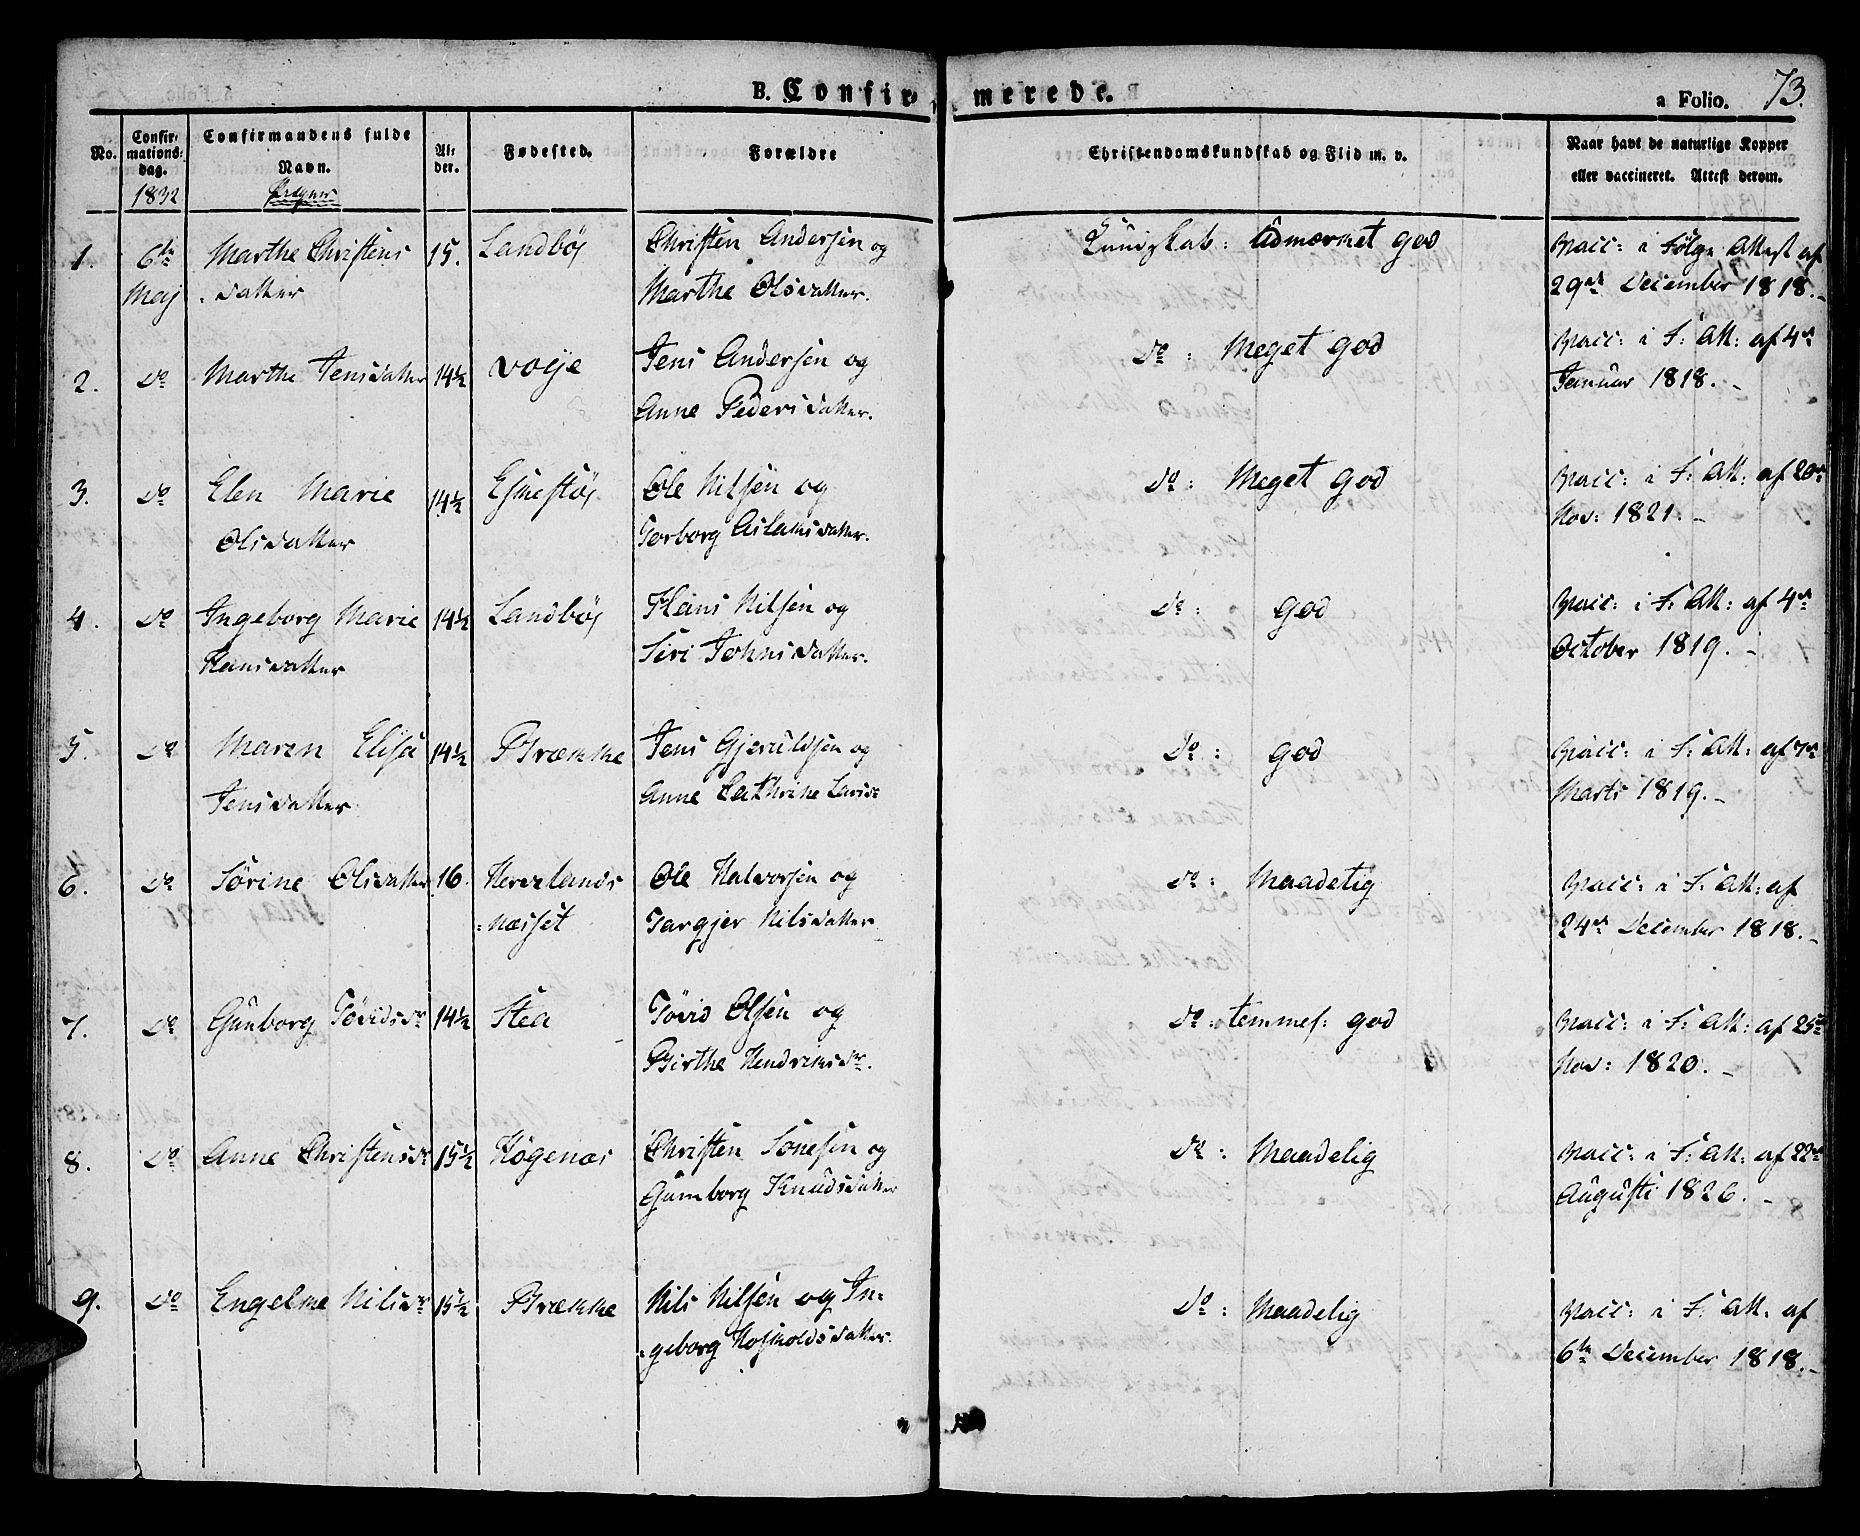 B. Confirmerede.
a Folio. 73.
No. Confirmationsdag. Confirmandens fulde Navn. Alder. Fødested. Forældre Christendomskundskab og Flid m. v. Naar havt de naturlige Kopper eller vaccineret. Attest derom.
1832 Piger
1. 6te Marthe Christens 15. Landbøe Christen Andersen og Kundskab: Udmærket god Vacc: i Følge Attest af
Maj datter Marthe Olsdatter. 29de December 1818.
2. do Marthe Jensdatter 14½ Voÿe Jens Andersen og do: Meget god Vacc: i F: Att: af 4de
Anne Pedersdatter. Januar 1818.
3. do Elen Marie 14½ Esmestøe Ole Nilsen og do: Meget god Vacc: i F: Att: af 20de
Olsdatter Torborg Aslaksdatter. Nov: 1821.
4. do Ingeborg Marie 14½ Landbøe Hans Nilsen og do: god Vacc: i F: Att: af 4de
Hansdatter Siri Johnsdatter. October 1819.
5. do Maren Elisa 14½ Brække Jens Gjeruldsen og do: god Vacc: i F: Att: af 7de
Jensdatter Anne Cathrine Larsdr Marts 1819.
6. do Sørine Olsdatter 16. Hervelands Ole Halvorsen og do: Maadelig Vacc: i F: Att: af
næsset Targjer Nilsdatter 24de December 1818.
7. do Gunborg Tøvidsdr 14½ Stea Tøvid Olsen og do: temmel: god Vacc: i F: Att: af 25de
Birthe Hendriksdr. Nov: 1820.
8. do Anne Christensdr 15½ Høgenæs Christen Sonesen og do: Maadelig Vacc: i F: Att: af 22de
Gumborg Knudsdatter Augusti 1826.
9. do Engelme Nilsdr 15½ Brække Nils Nilsen og In- do: Maadelig Vacc: i F: Att: af
geborg Hoskoldsdatter. 6te December 1818.